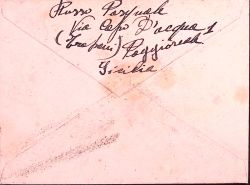 Russo Pasquale
Via Capo D'acqua 1
(Trapani) Poggioreale
Sicilia